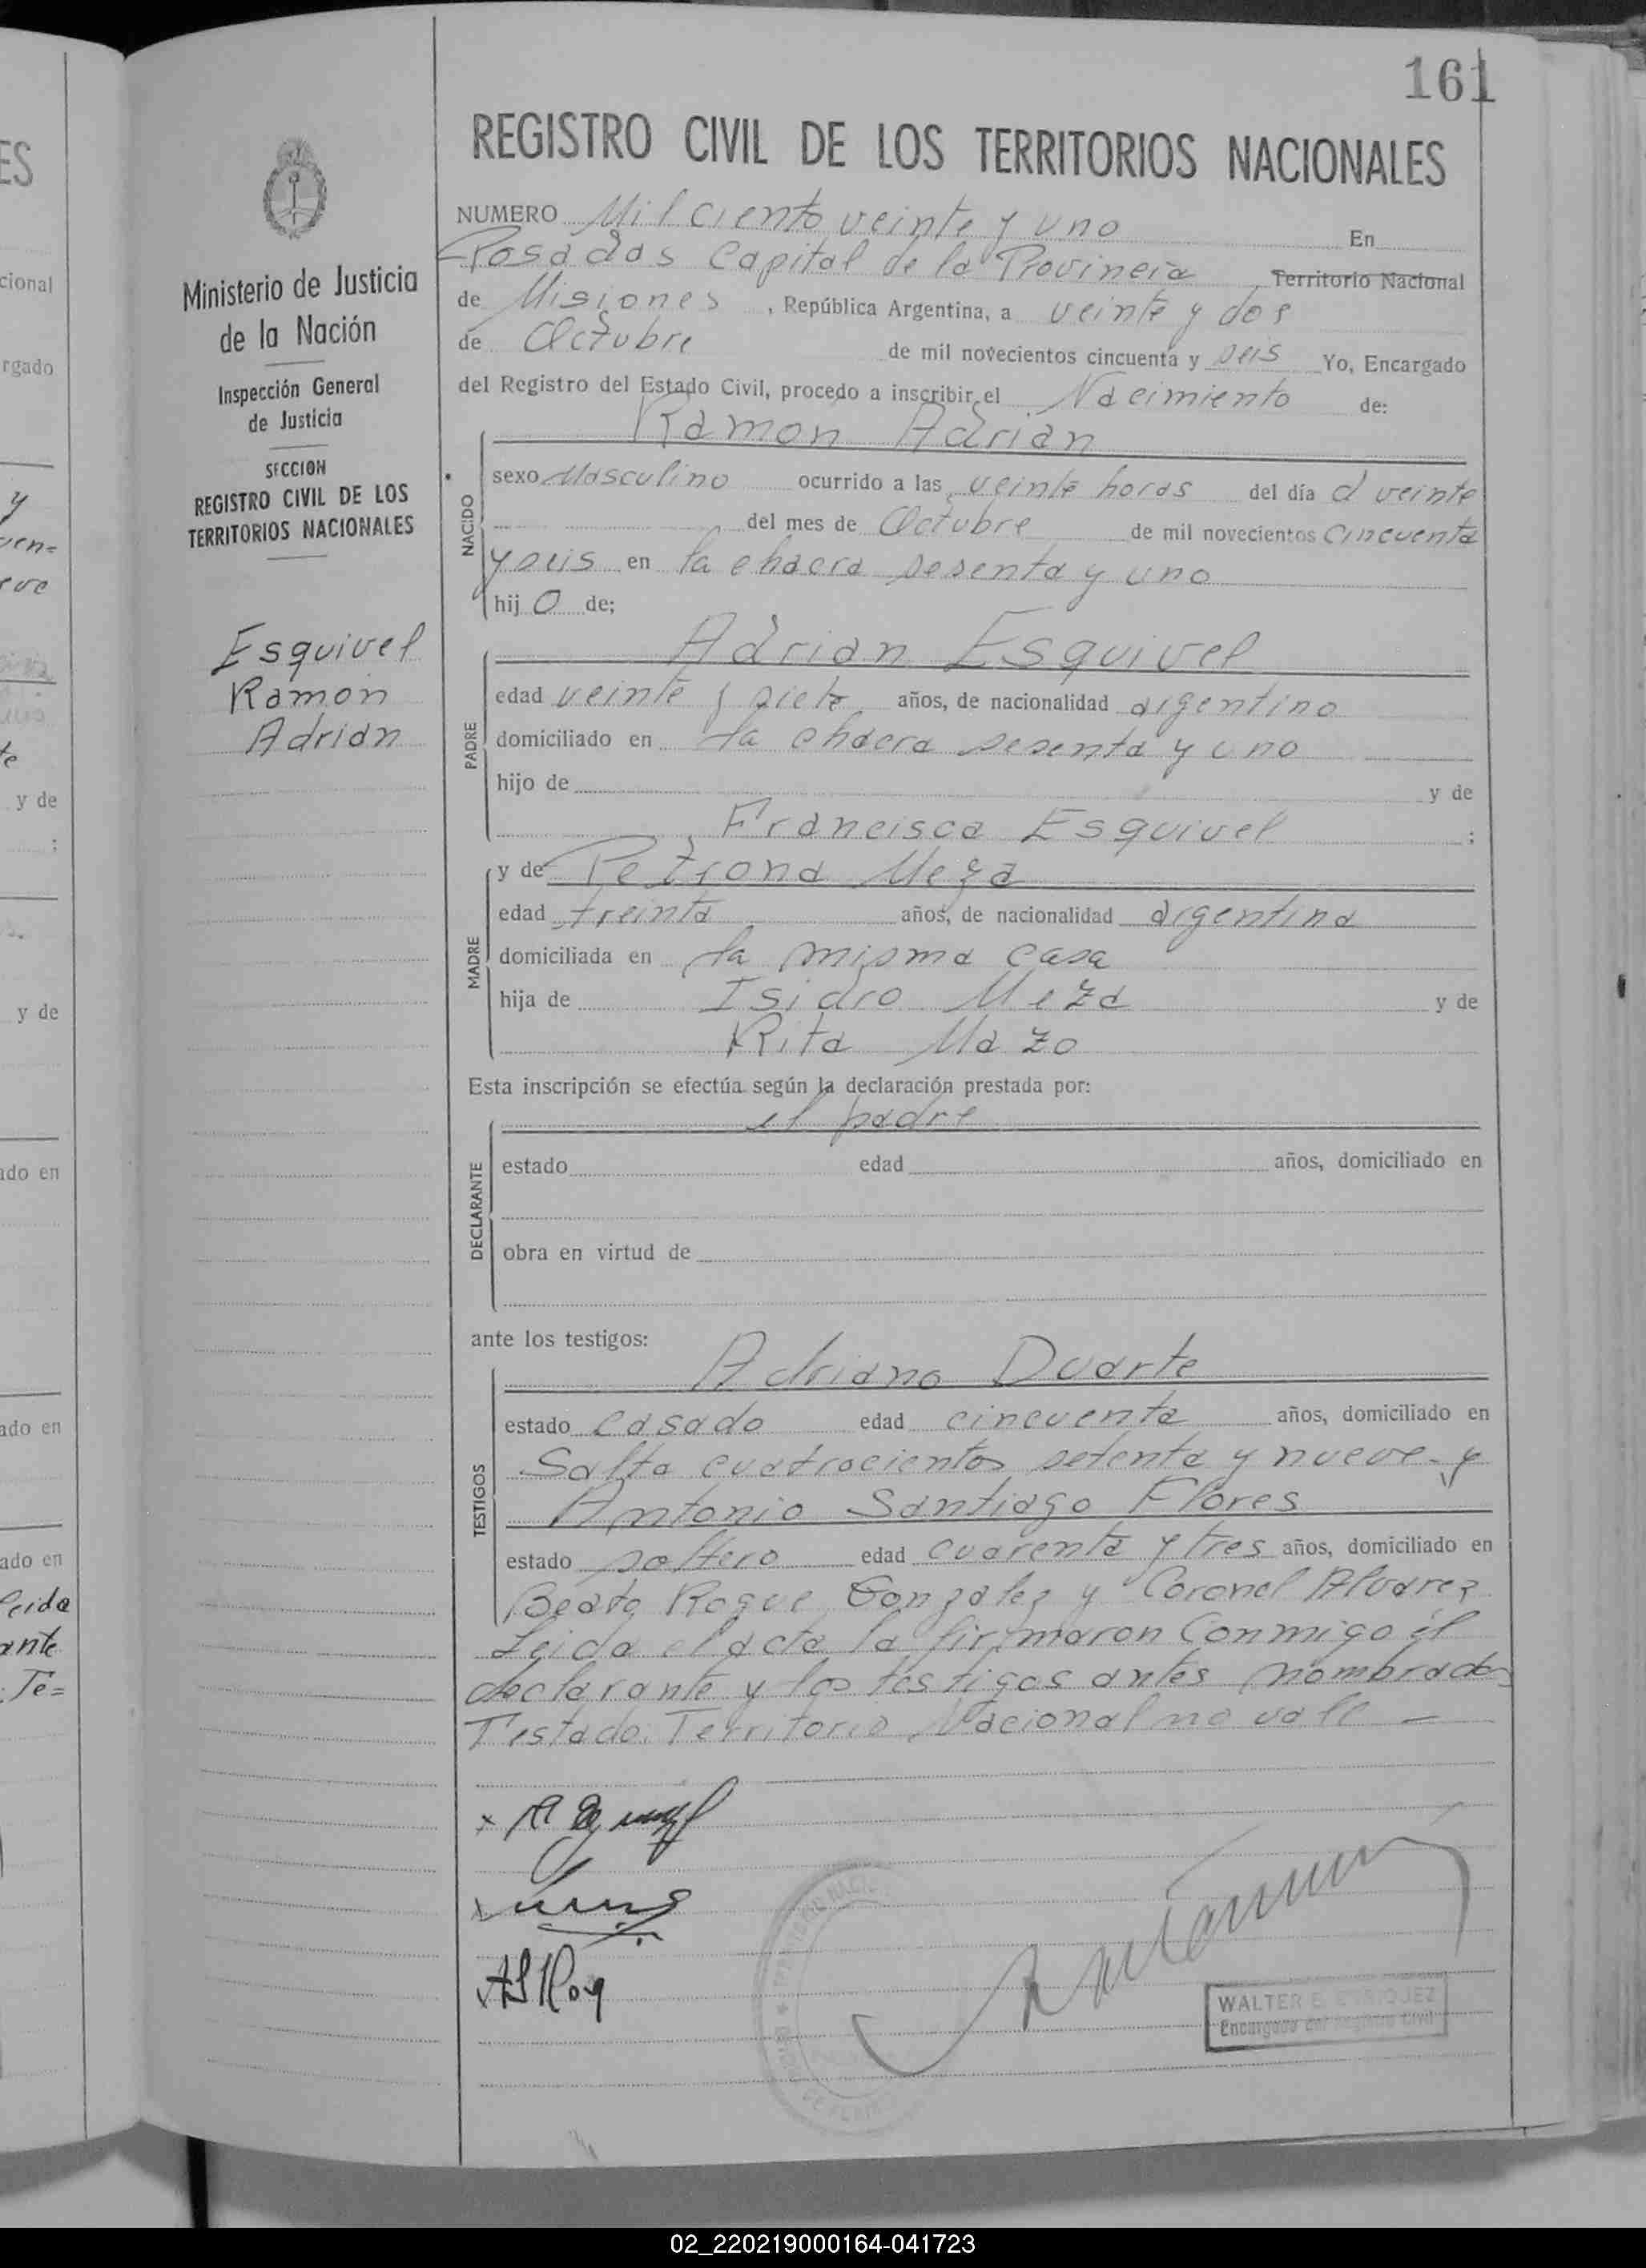 161
REGISTRO CIVIL DE LOS TERRITORIOS NACIONALES
Ministerio de Justicia
de la Nación
Inspección General
de Justicia
SECCION
REGISTRO CIVIL DE LOS
TERRITORIOS NACIONALES
Esquivel
Ramon
Adrian
NUMERO Mil ciento veinte y uno En
Posadas Capital de la Provincia Territorio Nacional
de Misiones, República Argentina, a veinte y dos
de Octubre de mil novecientos cincuenta y seis Yo, Encargado
del Registro del Estado Civil, procedo a inscribir el Nacimiento de:
Ramon Adrian
NACIDO
sexo Masculino ocurrido a las veinte horas del día d veinte
del mes de Octubre de mil novecientos cincuenta
y seis en la chacra sesenta y uno
hijo de;
Adrian Esquivel
PADRE
edad veinte y siete años, de nacionalidad argentino
domiciliado en la chacra sesenta y uno
hijo de y de
Francisca Esquivel ;
y de Petrona Meza
MADRE
edad treinta años, de nacionalidad argentina
domiciliada en la misma casa
hija de Isidro Meza y de
Rita Mazo
Esta inscripción se efectúa según la declaración prestada por:
el padre
DECLARANTE
estado edad años, domiciliado en
obra en virtud de
ante los testigos:
Adriano Duarte
TESTIGOS
estado casado edad cincuenta años, domiciliado en
Salta cuatrocientos setenta y nueve - y
Antonio Santiago Flores
estado soltero edad cuarenta y tres años, domiciliado en
Beato Roque Gonzalez y Coronel Alvarez
Leida el acta la firmaron conmigo el
declarante y los testigos antes nombrados
Testado: Territorio Nacional no vale —
WALTER E. ENRIQUEZ
Encargado del Registro Civil
02_220219000164-041723